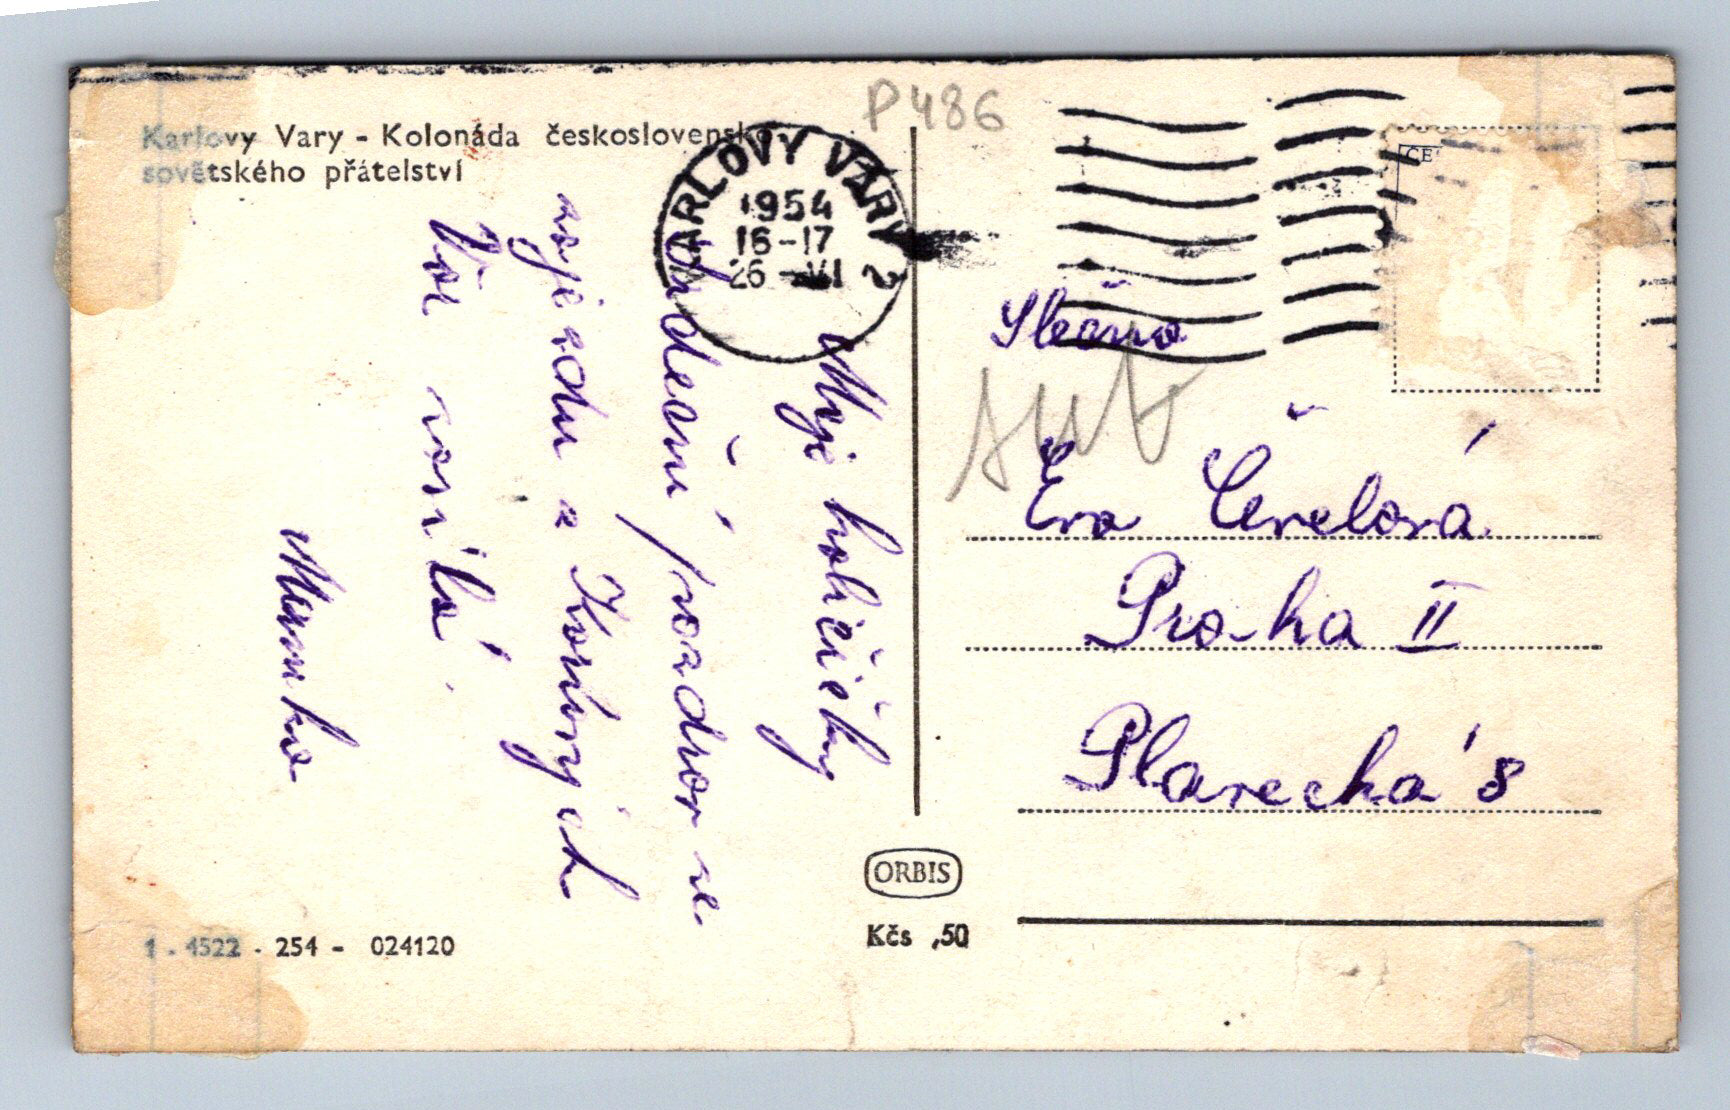 Karlovy Vary - Kolonáda československo
sovětského přátelství
P486
KARLOVY VARY 2
1954
16-17
26 VI
Moje holčičky
srdečný pozdrav ze
zájezdu z Karlových
Var
Mamka
Slečna
Eva
Praha II
8
ORBIS
Kčs ,50
1 . 4522 . 254 - 024120